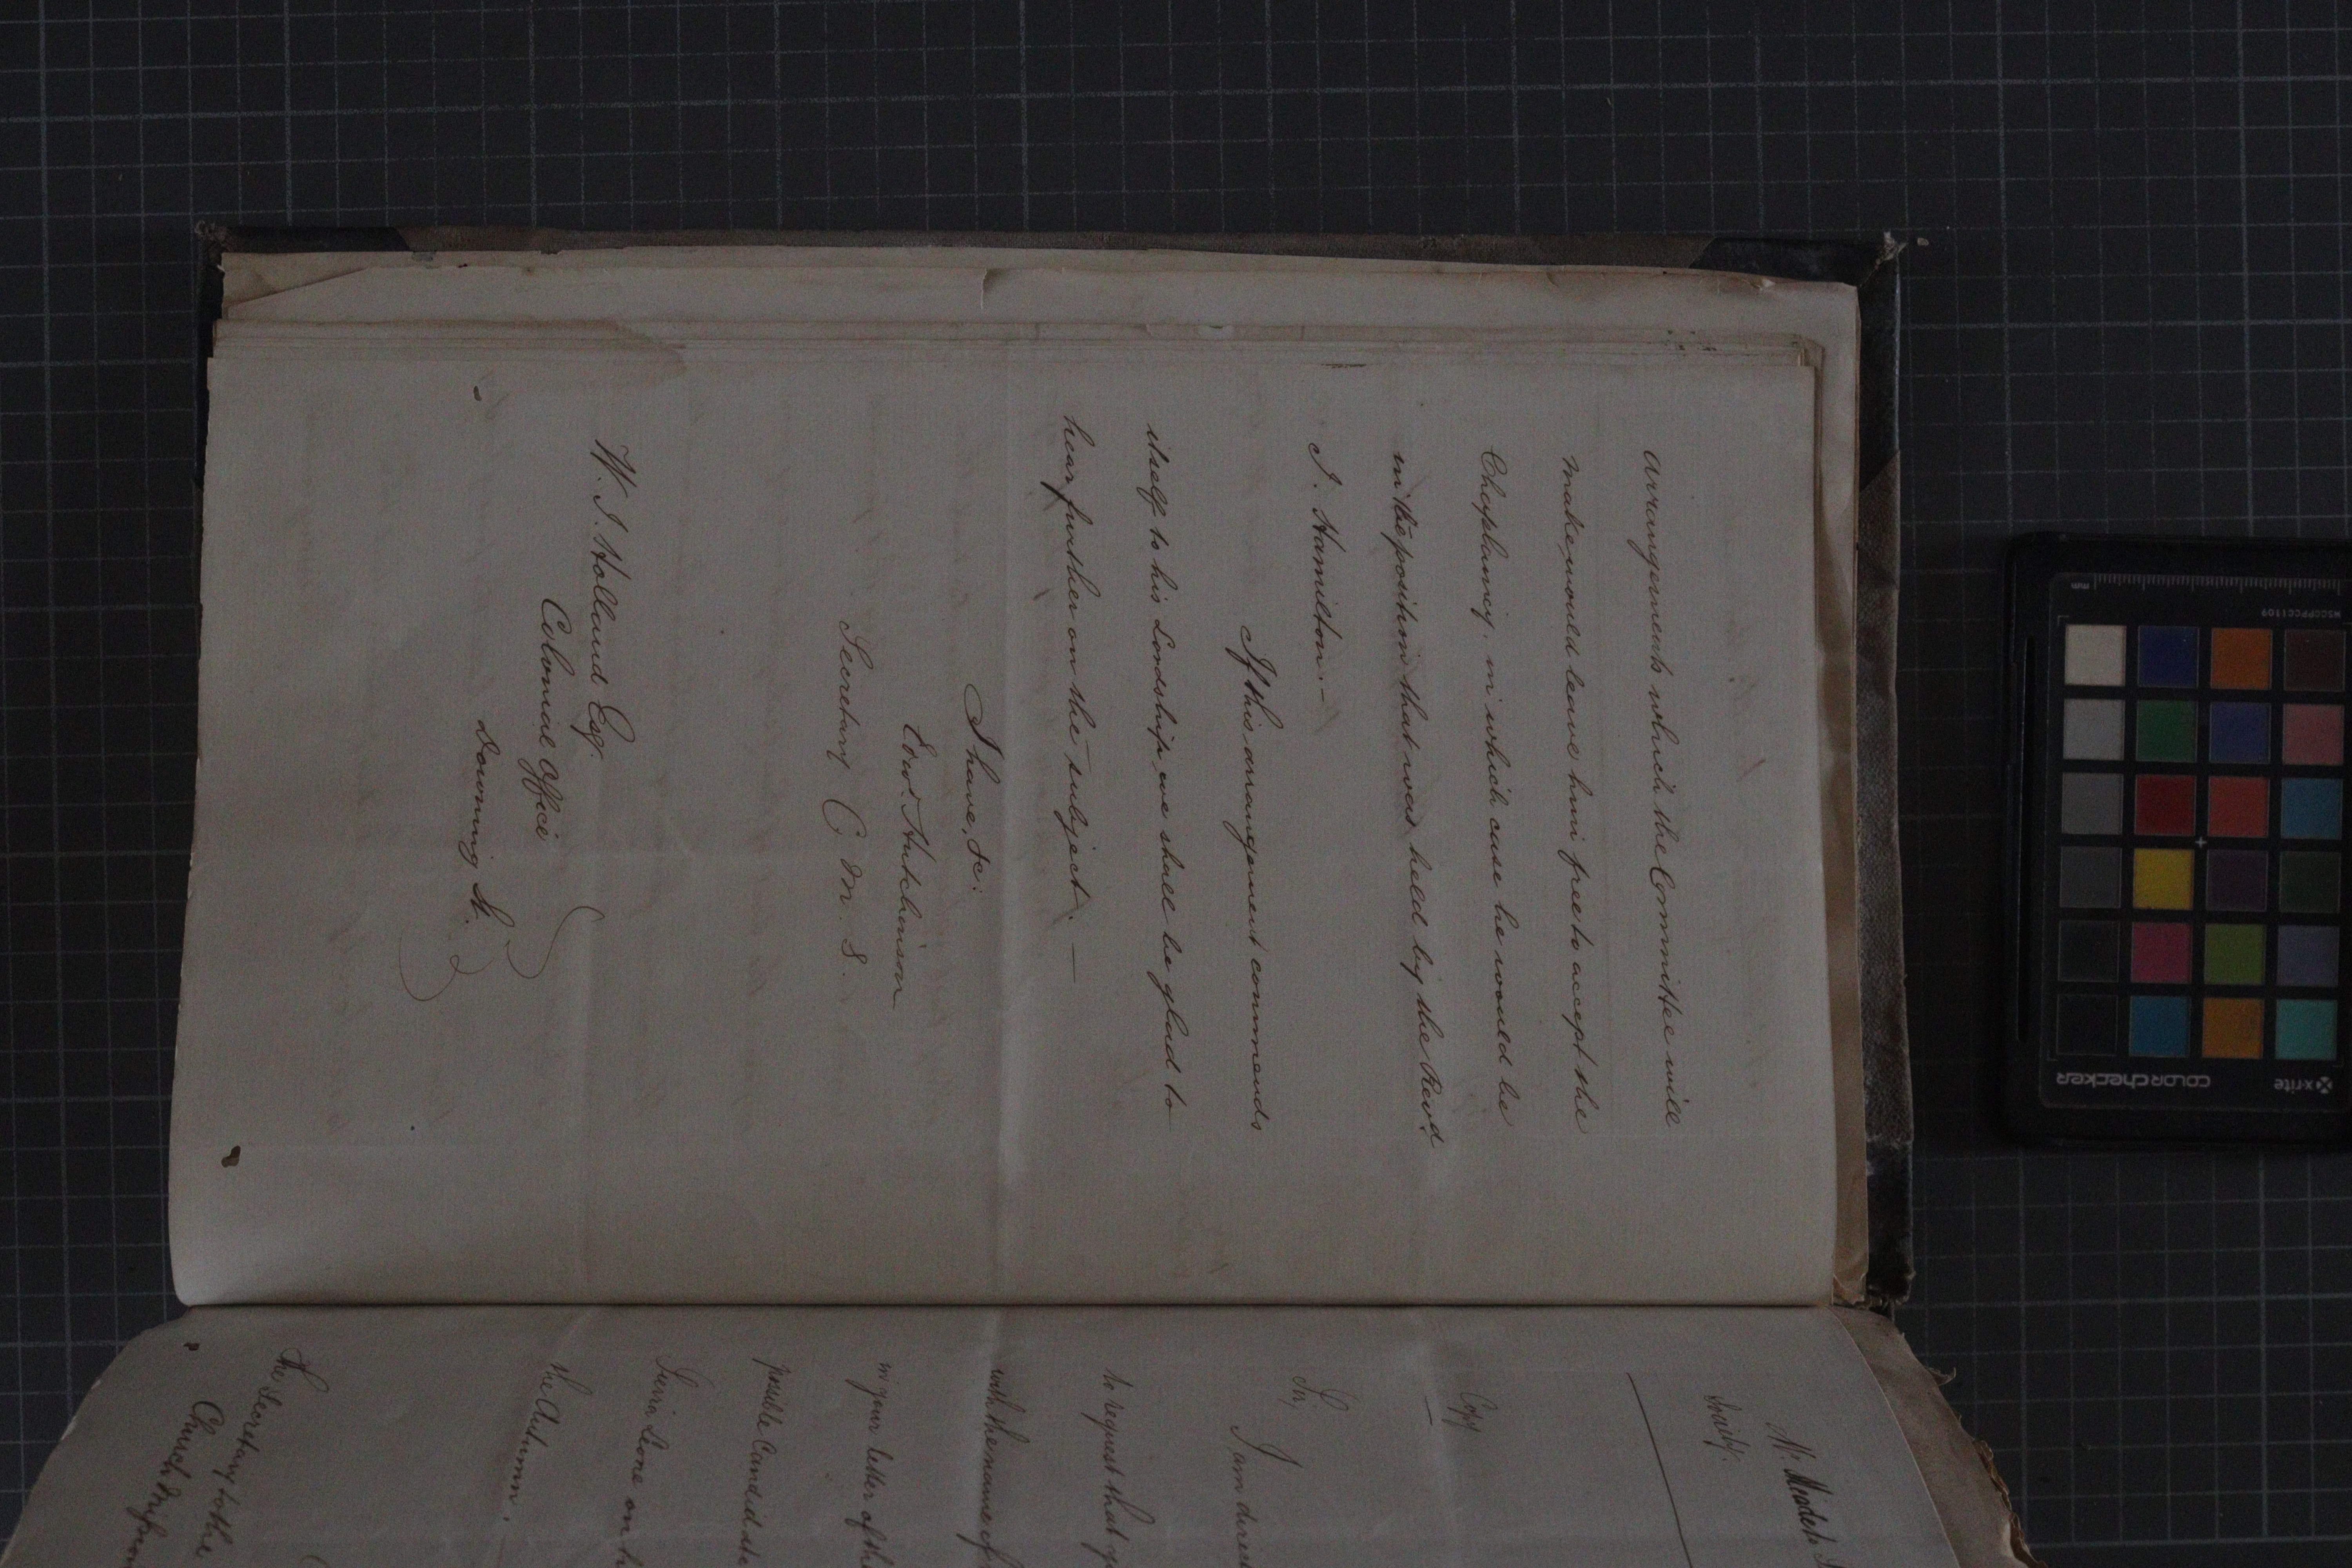 Arrangements which the Committee will
make would leave him free to accept the
Chaplaincy, in which case he would be
in the position that was held by the Revd
J. Hamilton. —
If this arrangement commends
itself to his Lordship, we shall be glad to
hear further on the subject. —
I have, &c:
Edwd. Hutchinson
Secretary C. M. S.
W. J. Holland Esq.
Colonial Office
Downing St.
Society.
Copy
Sir,
I am direc
to request that y
with the name of
in your letter of th
possible Candidate
Sierra Leone on h
the Autumn.
The Secretary to the
Church
mm
MSCCPPCC1109
x-rite
colorchecker